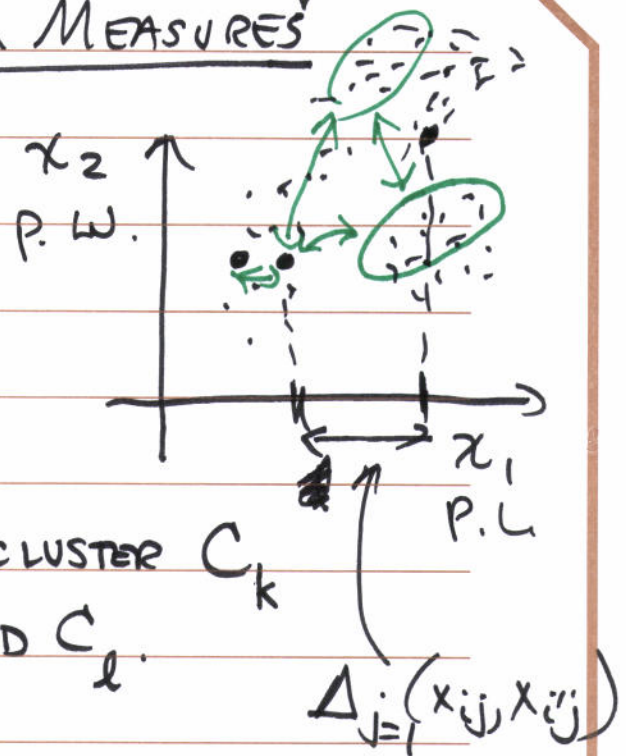 MEASURES
x₂
P.W.
x₁
P.L
CLUSTER Cₖ
D Cₗ.
Δⱼ₌₁(xᵢⱼ, xᵢ'ⱼ)